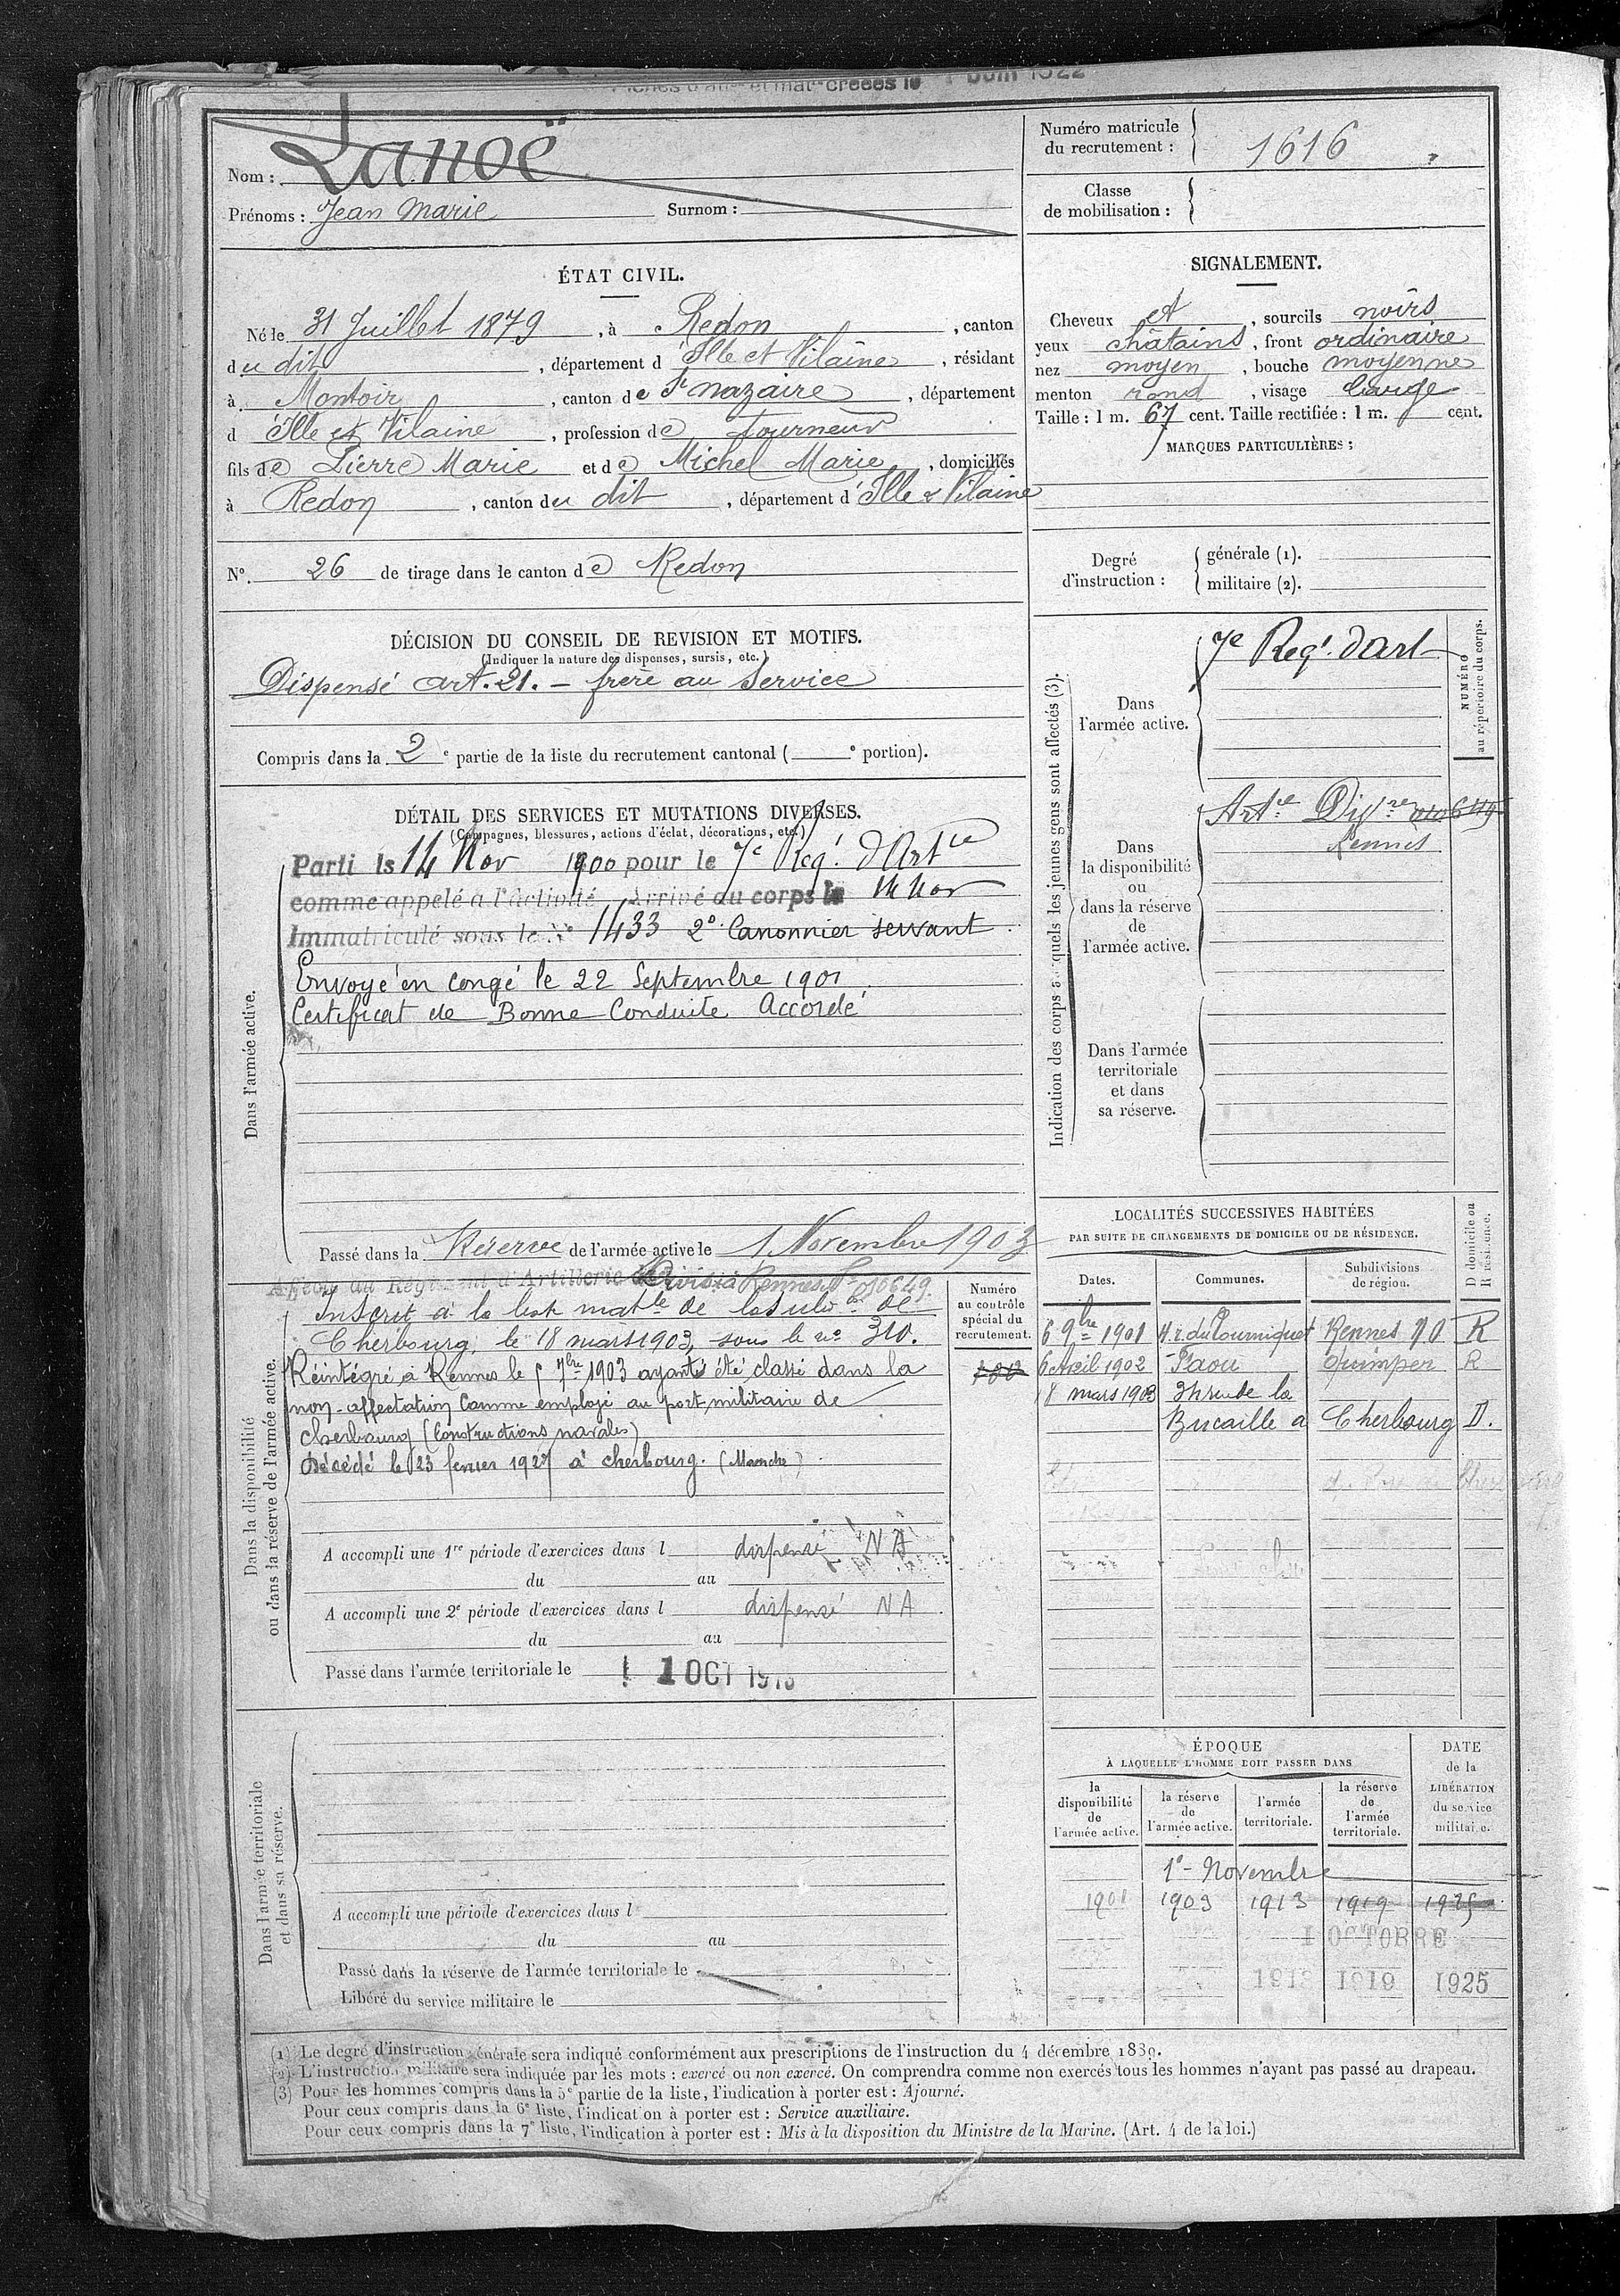 Nom : Lanoë
Prénoms : Jean Marie Surnom :
Numéro matricule
du recrutement : 1616
Classe
de mobilisation :
ÉTAT CIVIL.
Né le 31 Juillet 1879, à Redon, canton
du dit, département d'Ille et Vilaine, résidant
à Montoir, canton de St nazaire, département
d Ille et Vilaine, profession de Tourneur
fils de Pierre Marie et de Michel Marie, domiciliés
à Redon, canton du dit, département d'Ille & Vilaine
N° 26 de tirage dans le canton de Redon
SIGNALEMENT.
Cheveux et, sourcils noirs
yeux châtains, front ordinaire
nez moyen, bouche moyenne
menton rond, visage large
Taille : 1 m. 67 cent. Taille rectifiée : 1 m. cent.
MARQUES PARTICULIÈRES :
Degré
d'instruction :
générale (1).
militaire (2).
DÉCISION DU CONSEIL DE REVISION ET MOTIFS.
(Indiquer la nature des dispenses, sursis, etc.)
Dispensé art. 21. - frère au Service
Compris dans la 2e partie de la liste du recrutement cantonal ( e portion).
DÉTAIL DES SERVICES ET MUTATIONS DIVERSES.
(Campagnes, blessures, actions d'éclat, décorations, etc.)
Dans l'armée active.
Parti le 14 Nov 1900 pour le 7e Rég. d'Artie
comme appelé à l'activité Arrivé au corps le 14 Nov
Immatriculé sous le N° 1433 2e Canonnier servant
Envoyé en congé le 22 Septembre 1901
Certificat de Bonne Conduite Accordé
Passé dans la Réserve de l'armée active le 1 Novembre 1903
Indication des corps auxquels les jeunes gens sont affectés (3).
NUMÉRO
au répertoire du corps.
Dans
l'armée active.
7e Reg. d'Art
Dans
la disponibilité
ou
dans la réserve
de
l'armée active.
Artie Divre
Rennes
Dans l'armée
territoriale
et dans
sa réserve.
Dans la disponibilité
ou dans la réserve de l'armée active.
Affecté au Régiment d'Artillerie de Divis à Rennes
Inscrit à la liste matle de la subdon de
Cherbourg, le 18 mars 1903, sous le n° 310.
Réintégré à Rennes le 5 7bre 1903 ayant été classé dans la
non-affectation comme employé au port militaire de
Cherbourg (Constructions navales)
Décédé le 23 fevrier 1927 à Cherbourg. (Manche)
A accompli une 1re période d'exercices dans l dispensé NA
du au
A accompli une 2e période d'exercices dans l dispensé NA
du au
Passé dans l'armée territoriale le 1 OCT 1913
Numéro
au contrôle
spécial du
recrutement.
LOCALITÉS SUCCESSIVES HABITÉES
PAR SUITE DE CHANGEMENTS DE DOMICILE OU DE RÉSIDENCE.
Dates. Communes. Subdivisions
de région. D domicile ou
R résidence.
6 9bre 1901 4 r. du Tourniquet Rennes R
6 Avril 1902 Paou Quimper R
18 mars 1903 rue de la
Bucaille à Cherbourg D.
Dans l'armée territoriale
et dans sa réserve.
A accompli une période d'exercices dans l
du au
Passé dans la réserve de l'armée territoriale le
Libéré du service militaire le
ÉPOQUE
À LAQUELLE L'HOMME DOIT PASSER DANS
la
disponibilité
de
l'armée active.
la réserve
de
l'armée active.
l'armée
territoriale.
la réserve
de
l'armée
territoriale.
DATE
de la
LIBÉRATION
du service
militaire.
1e Novembre
1901 1903 1913 1919 1925
1 OCTOBRE
1913 1919 1925
(1) Le degré d'instruction générale sera indiqué conformément aux prescriptions de l'instruction du 4 décembre 1889.
(2) L'instruction militaire sera indiquée par les mots : exercé ou non exercé. On comprendra comme non exercés tous les hommes n'ayant pas passé au drapeau.
(3) Pour les hommes compris dans la 5e partie de la liste, l'indication à porter est : Ajourné.
Pour ceux compris dans la 6e liste, l'indication à porter est : Service auxiliaire.
Pour ceux compris dans la 7e liste, l'indication à porter est : Mis à la disposition du Ministre de la Marine. (Art. 4 de la loi.)